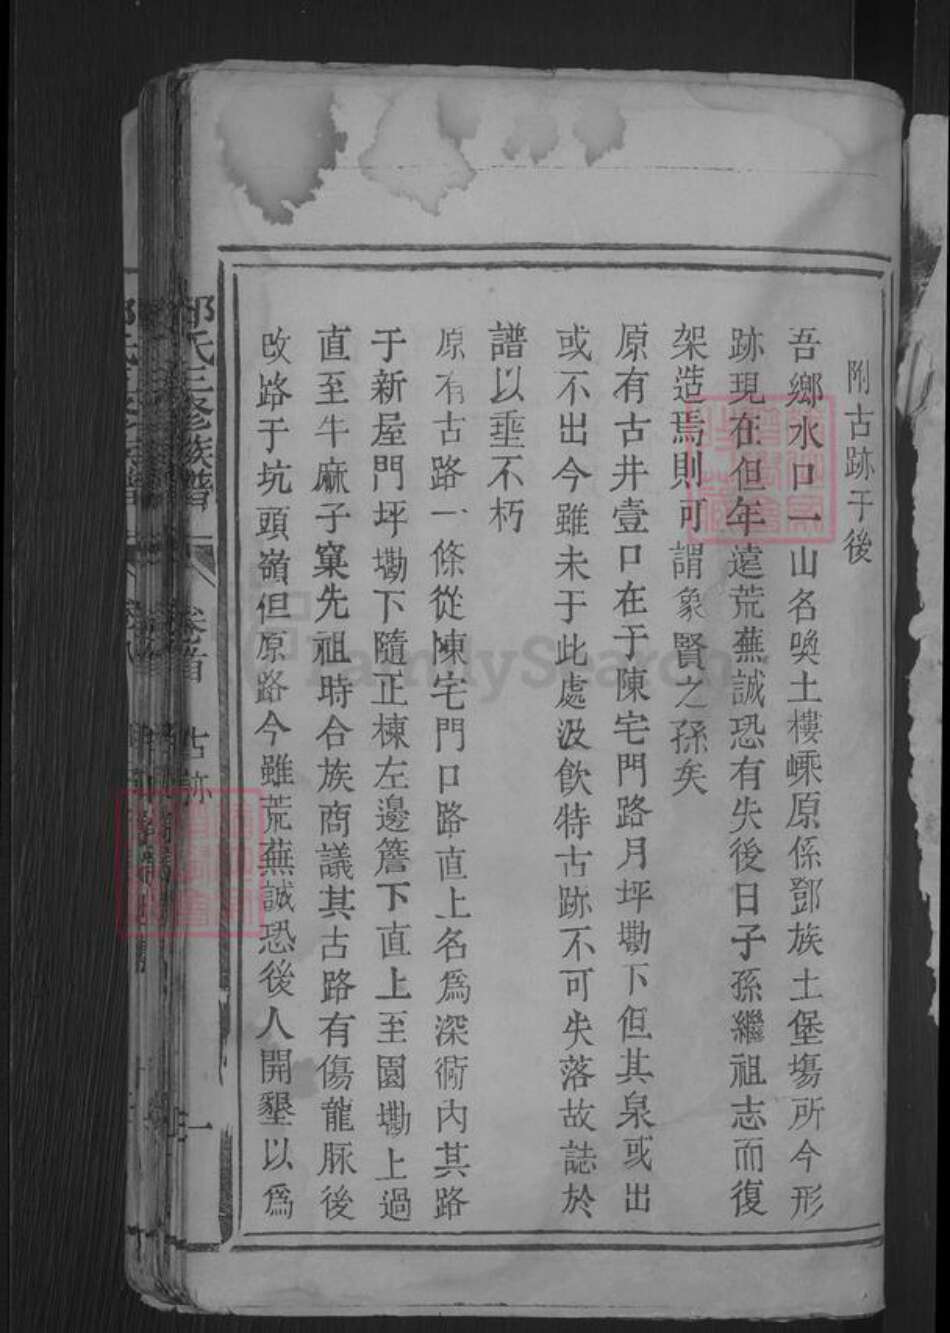 附古跡于後
吾鄉水口一山名喚土樓嵊原係鄧族土堡塲所今形
跡現在但年遠荒蕪誠恐有失後日子孫繼祖志而復
架造焉則可謂象賢之孫矣
原有古井壹口在于陳宅門路月坪墈下但其泉或出
或不出今雖未于此處汲飲特古跡不可失落故誌於
譜以垂不朽
原有古路一條從陳宅門口路直上名為深衕內其路
于新屋門坪墈下隨正棟左邊簷下直上至園墈上過
直至牛麻子窠先祖時合族商議其古路有傷龍脉後
改路于坑頭嶺但原路今雖荒蕪誠恐後人開墾以為
氏三修族譜
卷首
古跡
一
FamilySearch